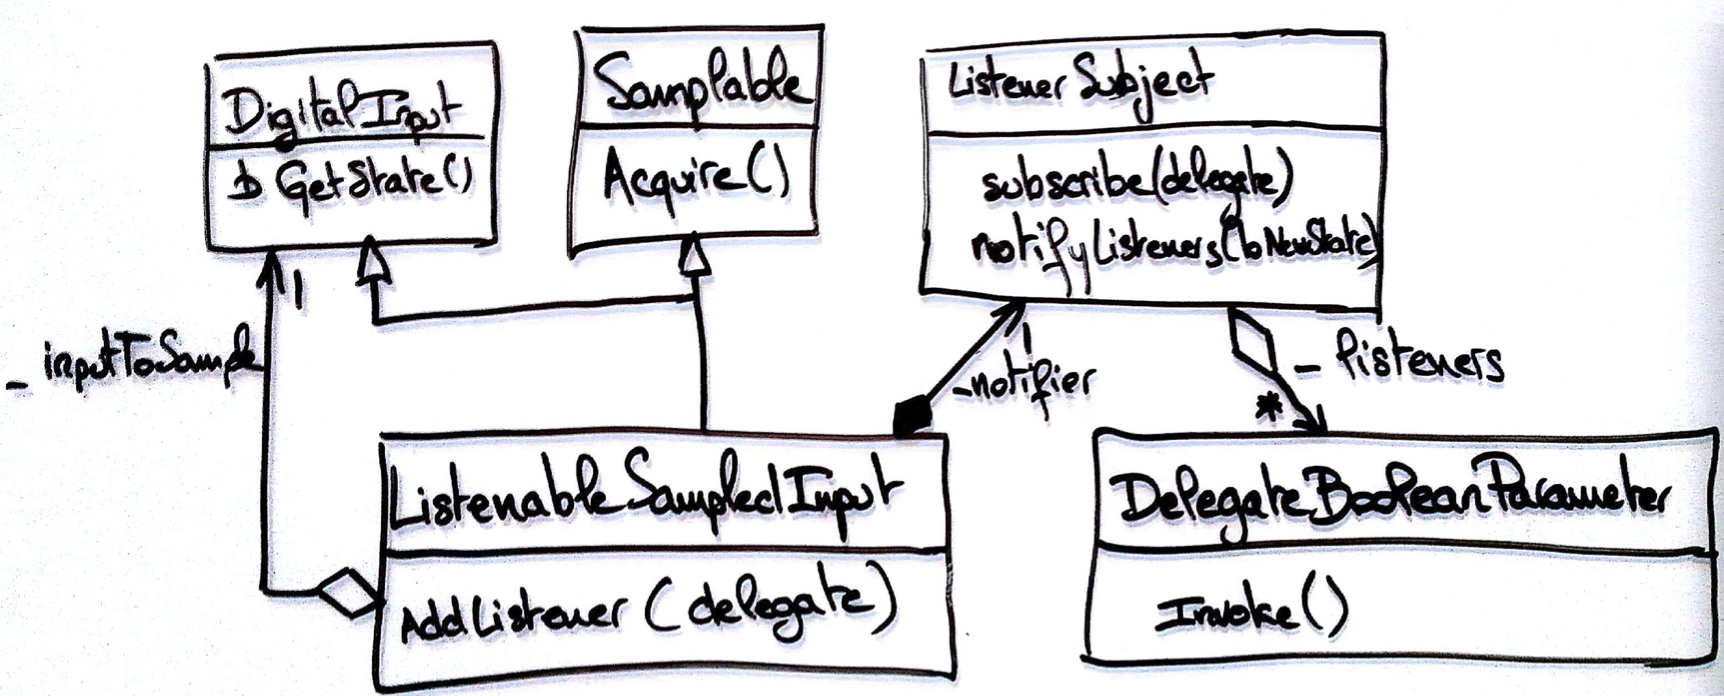 DigitalInput
b GetState()
Samplable
Acquire()
ListenerSubject
subscribe(delegate)
notifyListeners(bNewState)
1
_inputToSample
1
_notifier
_listeners
*
ListenableSampledInput
AddListener(delegate)
DelegateBooleanParameter
Invoke()